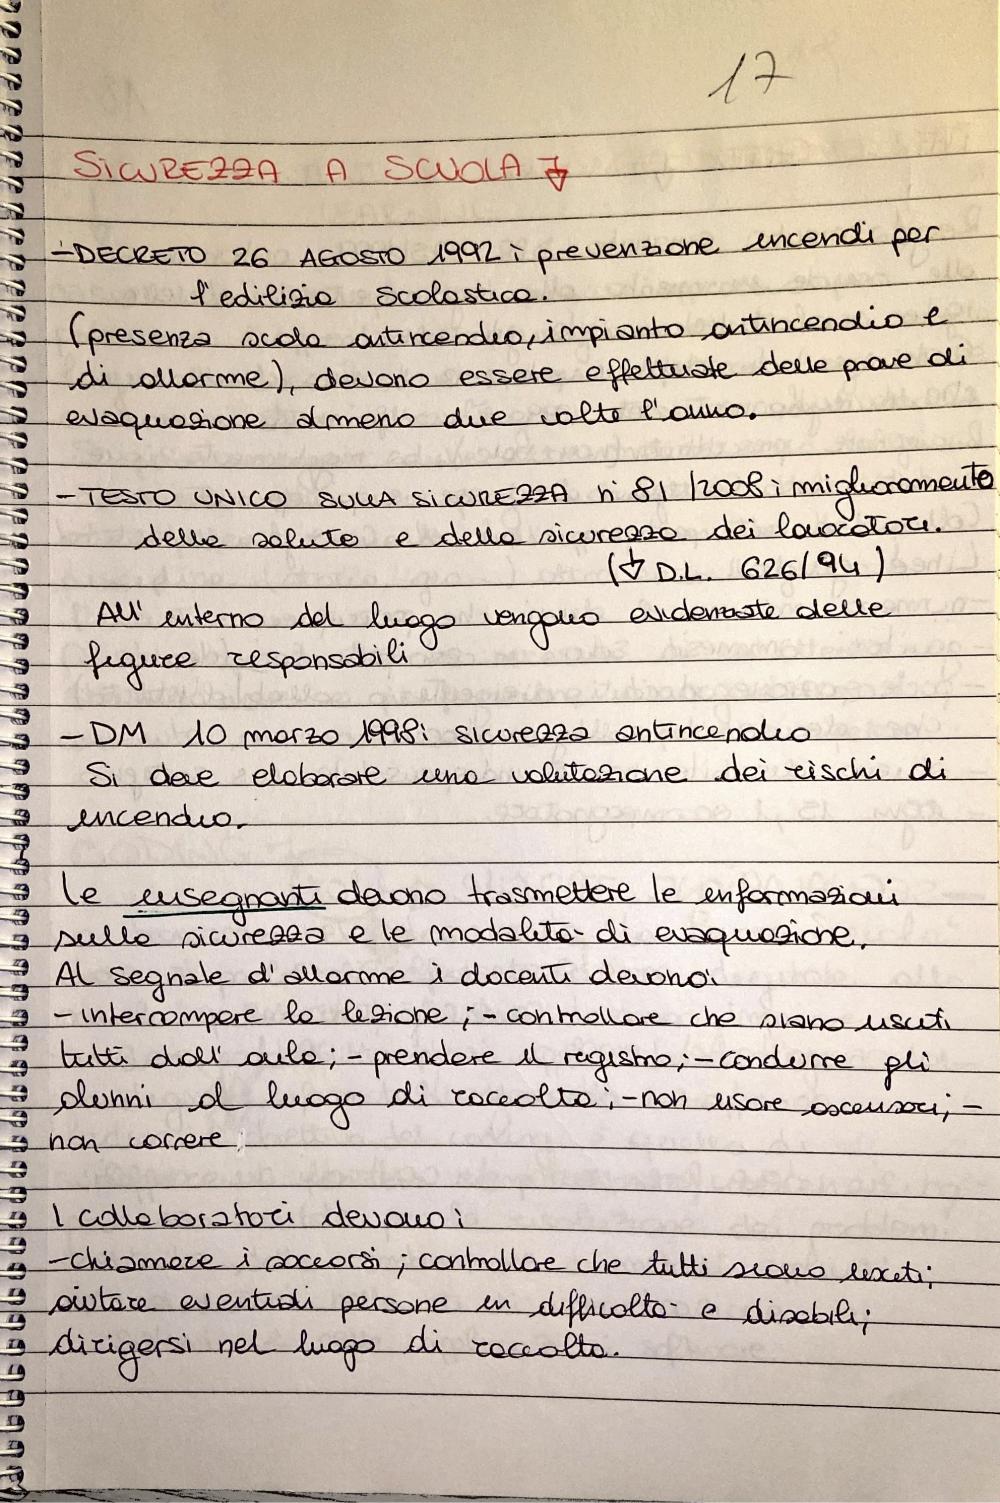 17
SICUREZZA A SCUOLA ↓
- DECRETO 26 AGOSTO 1992: prevenzione incendi per
l'edilizia scolastica.
(presenza scala antincendio, impianto antincendio e
di allarme), devono essere effettuate delle prove di
evaquazione almeno due volte l'anno.
- TESTO UNICO SULLA SICUREZZA n° 81/2008: miglioramento
della salute e della sicurezza dei lavoratori.
(↓ D.L. 626/94)
All'interno del luogo vengono evidenziate delle
figure responsabili
- DM 10 marzo 1998: sicurezza antincendio
Si deve elaborare una valutazione dei rischi di
incendio.
Le insegnanti devono trasmettere le informazioni
sulla sicurezza e le modalità di evaquazione.
Al segnale d'allarme i docenti devono:
- interrompere la lezione; - controllare che siano usciti
tutti dall'aula; - prendere il registro; - condurre gli
alunni al luogo di raccolta; - non usare ascensori; -
non correre.
I collaboratori devono:
- chiamare i soccorsi; controllare che tutti siano usciti;
aiutare eventuali persone in difficoltà e disabili;
dirigersi nel luogo di raccolta.